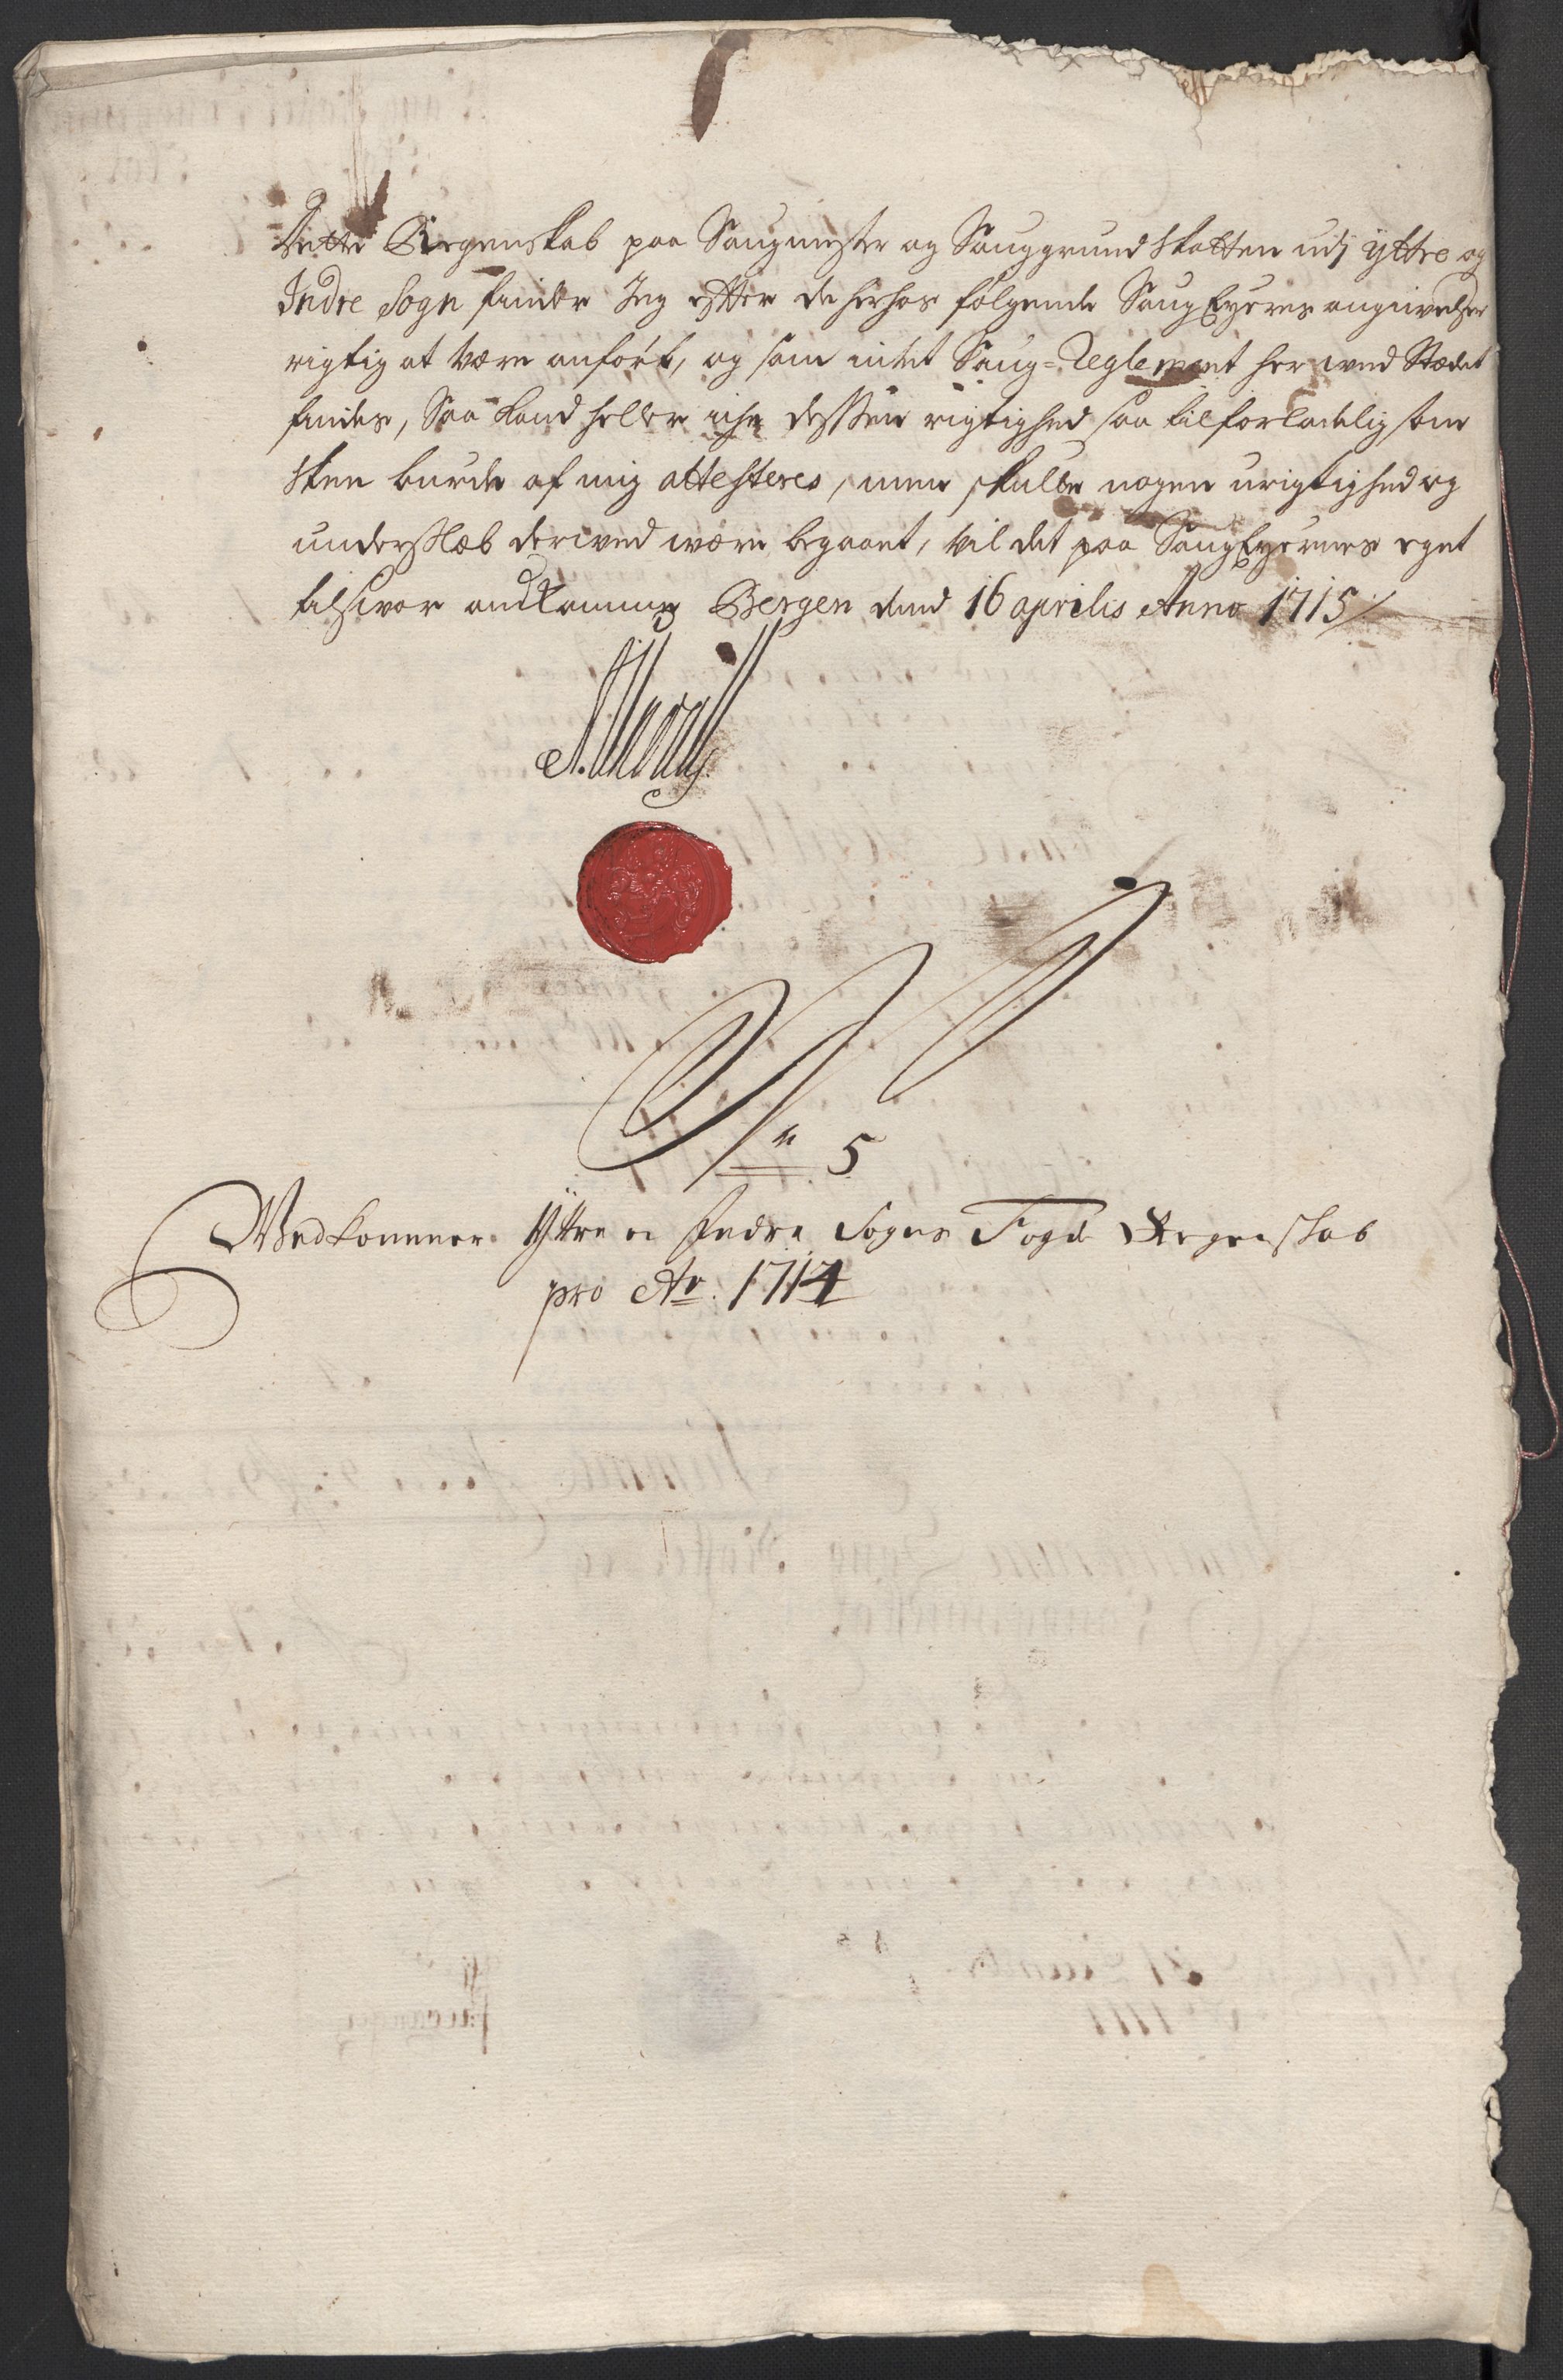 Dette Regenskab paa Saugmester og Sauggrundskatten udj ÿttre og
Indre Sogn finder Jeg efter de herhos følgende Saug Eyeres angivelser
rigtig at være anført, og som intet Saug=Reglement her wed Stædet
findes, Saa kand heller iche dessen rigtighed saa tilforladelig som
skee burde af mig attesteres, men skulle nogen urigtighed og
underslæb derwed wære begaaet, vil det paa SaugEyernes eget
tilswar andkomme, Bergen dend 16 aprilis Anno 1715/
N 5
Wedkommer Yttre oc Indre Sogns Fogd. Regenskab
pro Ao. 1714